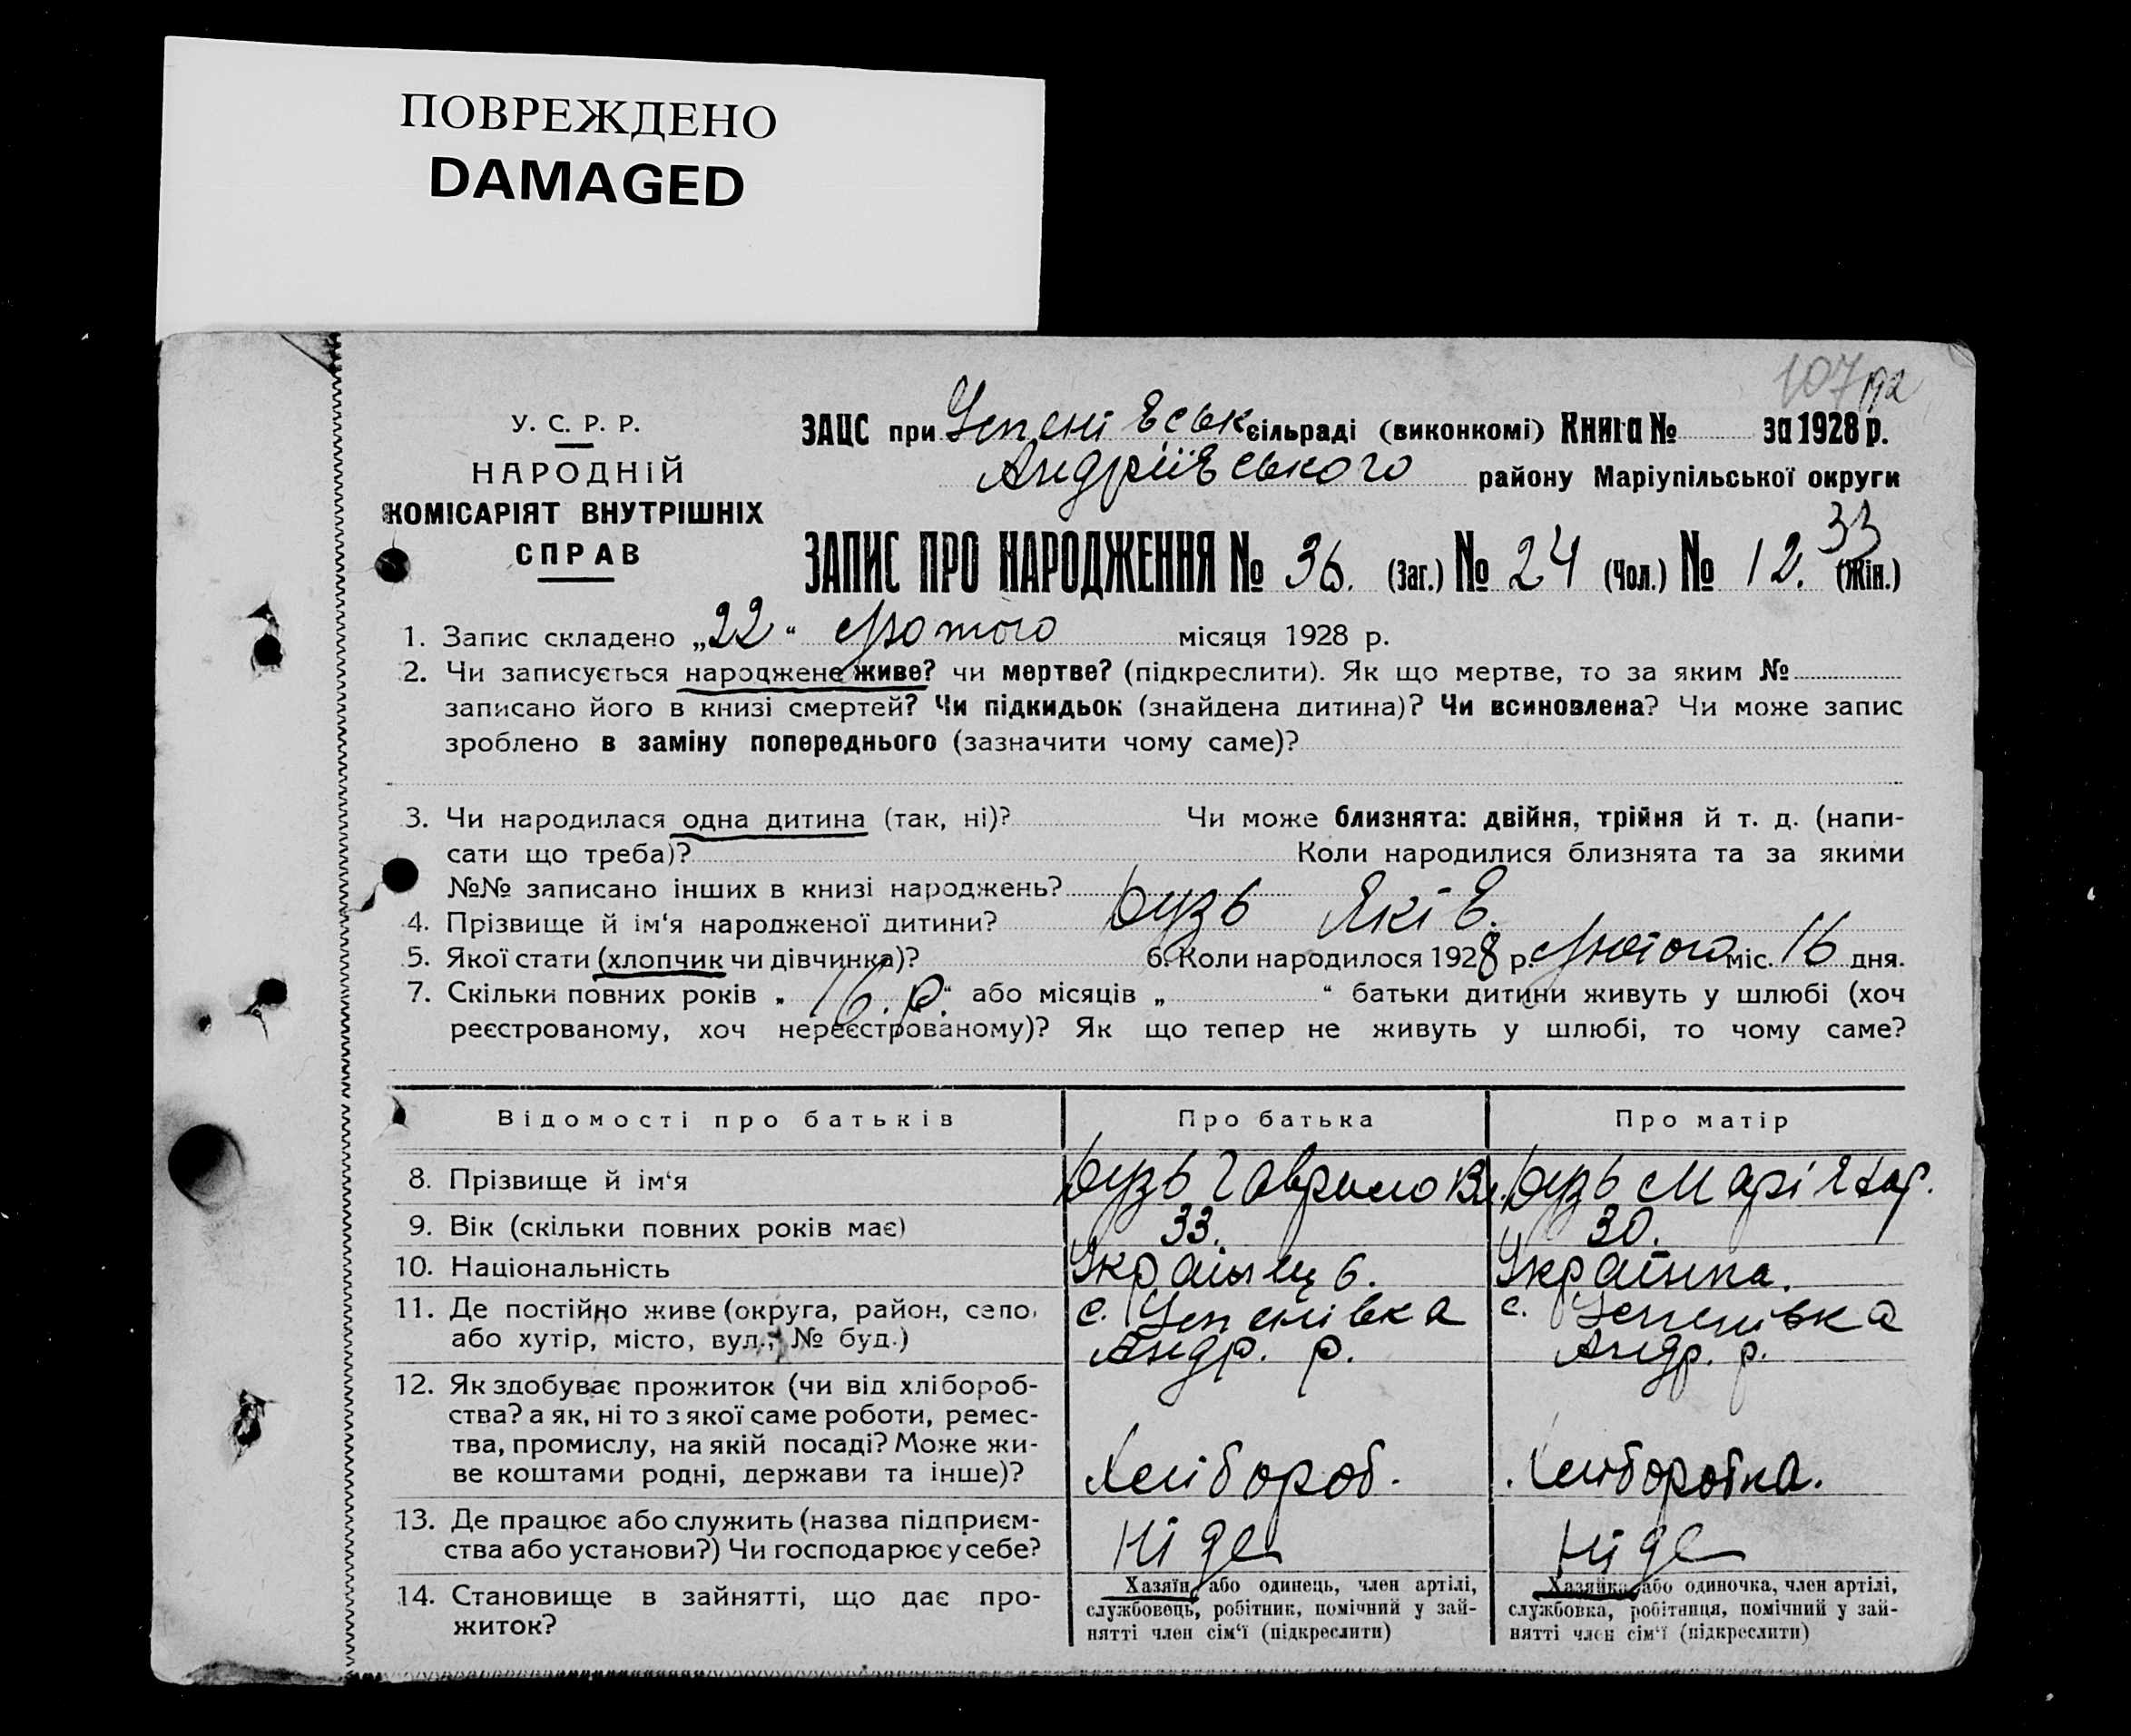 ПОВРЕЖДЕНО
DAMAGED
107 192
У. С. Р. Р.
НАРОДНІЙ
КОМІСАРІЯТ ВНУТРІШНІХ
СПРАВ
ЗАЦС при Успенівськ сільраді (виконкомі) Книга № за 1928 р.
Андріївського району Маріупільської округи
33
ЗАПИС ПРО НАРОДЖЕННЯ № 36. (Заг.) № 24 (Чол.) № 12. (Жін.)
1. Запис складено „22“ лютого місяця 1928 р.
2. Чи записується народжене живе? чи мертве? (підкреслити). Як що мертве, то за яким №
записано його в книзі смертей? Чи підкидьок (знайдена дитина)? Чи всиновлена? Чи може запис
зроблено в заміну попереднього (зазначити чому саме)?
3. Чи народилася одна дитина (так, ні)? Чи може близнята: двійня, трійня й т. д. (напи-
сати що треба)? Коли народилися близнята та за якими
№№ записано інших в книзі народжень?
4. Прізвище й ім‘я народженої дитини? Бузь Яків.
5. Якої стати (хлопчик чи дівчинка)? 6. Коли народилось 1928 р. лютого міс. 16 дня.
7. Скільки повних років „ 16. р.“ або місяців „ “ батьки дитини живуть у шлюбі (хоч
реєстрованому, хоч нереєстрованому)? Як що тепер не живуть у шлюбі, то чому саме?
Відомості про батьків Про батька Про матір
8. Прізвище й ім‘я Бузь Гаврило Бузь Марія
9. Вік (скільки повних років має) 33. 30.
10. Національність Українець. Українка.
11. Де постійно живе (округа, район, село, с. Успенівка с. Успенівка
або хутір, місто, вул., № буд.) Андр. р. Андр. р.
12. Як здобуває прожиток (чи від хлібороб-
ства? а як, ні то з якої саме роботи, ремес-
тва, промислу, на якій посаді? Може жи-
ве коштами родні, держави та інше)? Хлібороб. Хліборобка.
13. Де працює або служить (назва підприєм-
ства або установи?) Чи господарює у себе? Ніде Ніде
14. Становище в зайнятті, що дає про-
житок?
Хазяїн, або одинець, член артілі,
службовець, робітник, помічний у зай-
нятті член сім‘ї (підкреслити)
Хазяйка або одиночка, член артілі,
службовка, робітниця, помічний у зай-
нятті член сім‘ї (підкреслити)